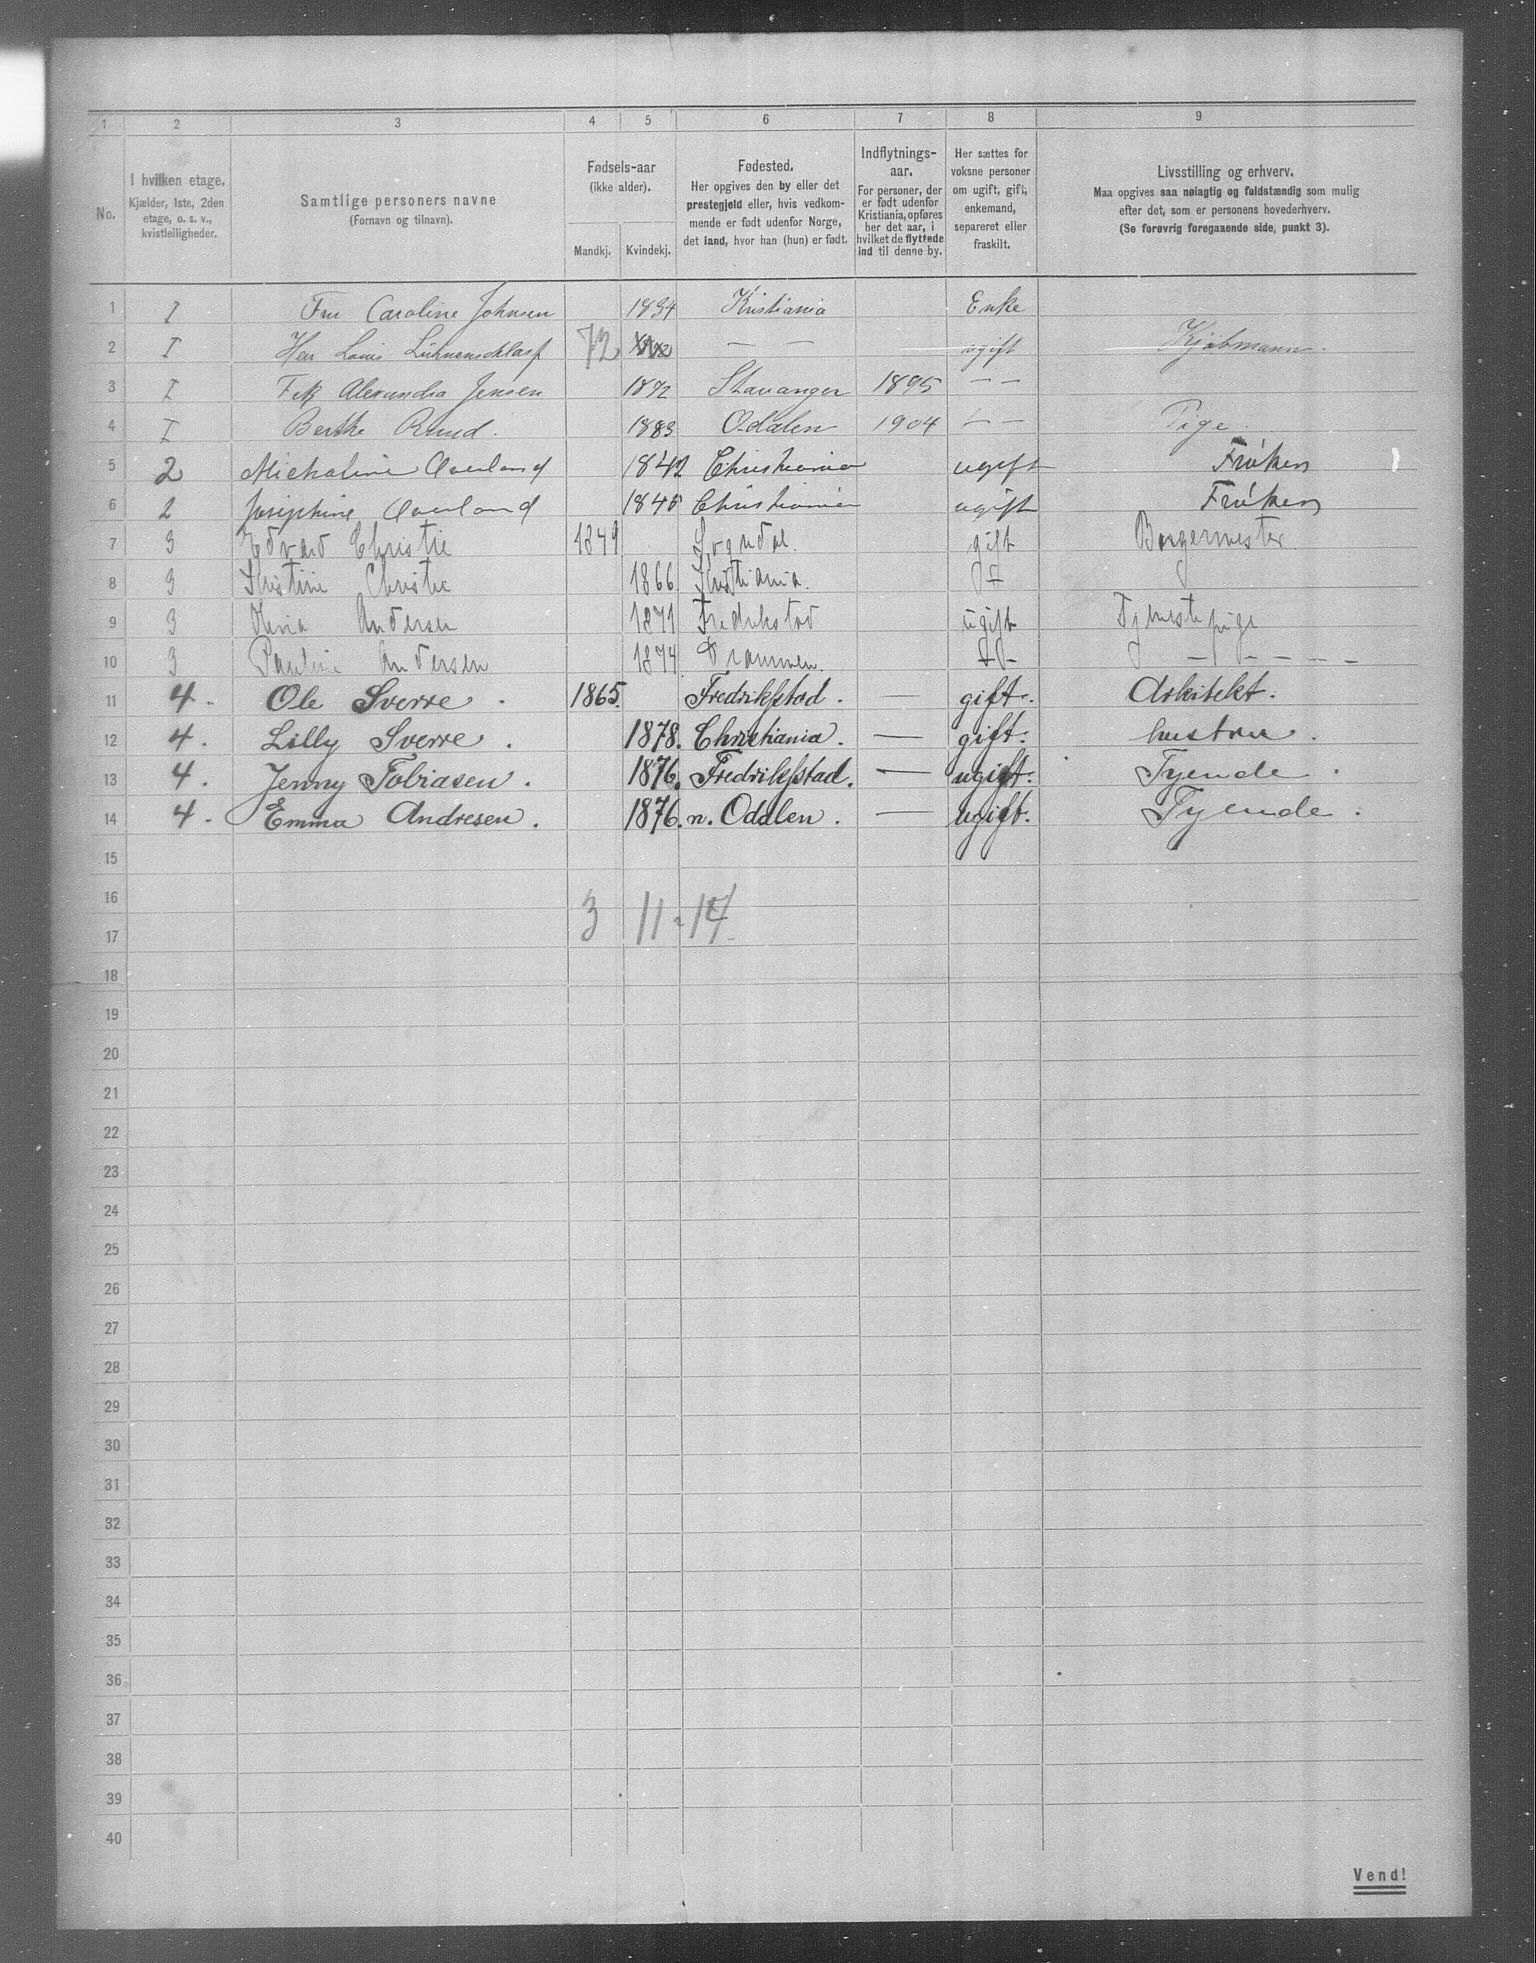 1 2 3 4 5 6 7 8 9
No.
I hvilken etage.
Kjælder, 1ste, 2den
etage, o. s. v.,
kvistleiligheder.
Samtlige personers navne
(Fornavn og tilnavn).
Fødsels-aar
(ikke alder).
Mandkj. Kvindekj.
Fødested.
Her opgives den by eller det
prestegjeld eller, hvis vedkom-
mende er født udenfor Norge,
det land, hvor han (hun) er født.
Indflytnings-
aar.
For personer, der
er født udenfor
Kristiania, opføres
her det aar, i
hvilket de flyttede
ind til denne by.
Her sættes for
voksne personer
om ugift, gift,
enkemand,
separeret eller
fraskilt.
Livsstilling og erhverv.
Maa opgives saa nøiagtig og fuldstændig som mulig
efter det, som er personens hovederhverv.
(Se forøvrig foregaaende side, punkt 3).
1 I Fru Caroline Johnsen 1834 Kristiania Enke
2 I Herr Louis 72 — — ugift Kjøbmann.
3 I Frk Alexandra Jensen 1872 Stavanger 1895 — —
4 I Berthe Ruud. 1883 Odalen 1904 — — Pige.
5 2 Michaline Overland 1842 Christiania ugift Frøken
6 2 Josephine Overland 1845 Christiania ugift Frøken
7 3 Edvard Christie 1849 Sogndal. gift Borgermester
8 3 Kristine Christie 1866. Kristiania.
9 3 Olivia Andersen 1871 Fredrikstad ugift Tjenestepige
10 3 Pauline Andersen 1874 Drammen.
11 4. Ole Sverre. 1865. Fredrikstad. — gift. Arkitekt.
12 4. Lilly Sverre. 1878. Christiania. — gift. hustru.
13 4. Jenny Tobiasen. 1876. Fredrikstad. — ugift. Tyende.
14 4. Emma Andresen. 1876. n. Odalen. — ugift. Tyende.
15
16
3 11 = 14
17
18
19
20
21
22
23
24
25
26
27
28
29
30
31
32
33
34
35
36
37
38
39
40
Vend!